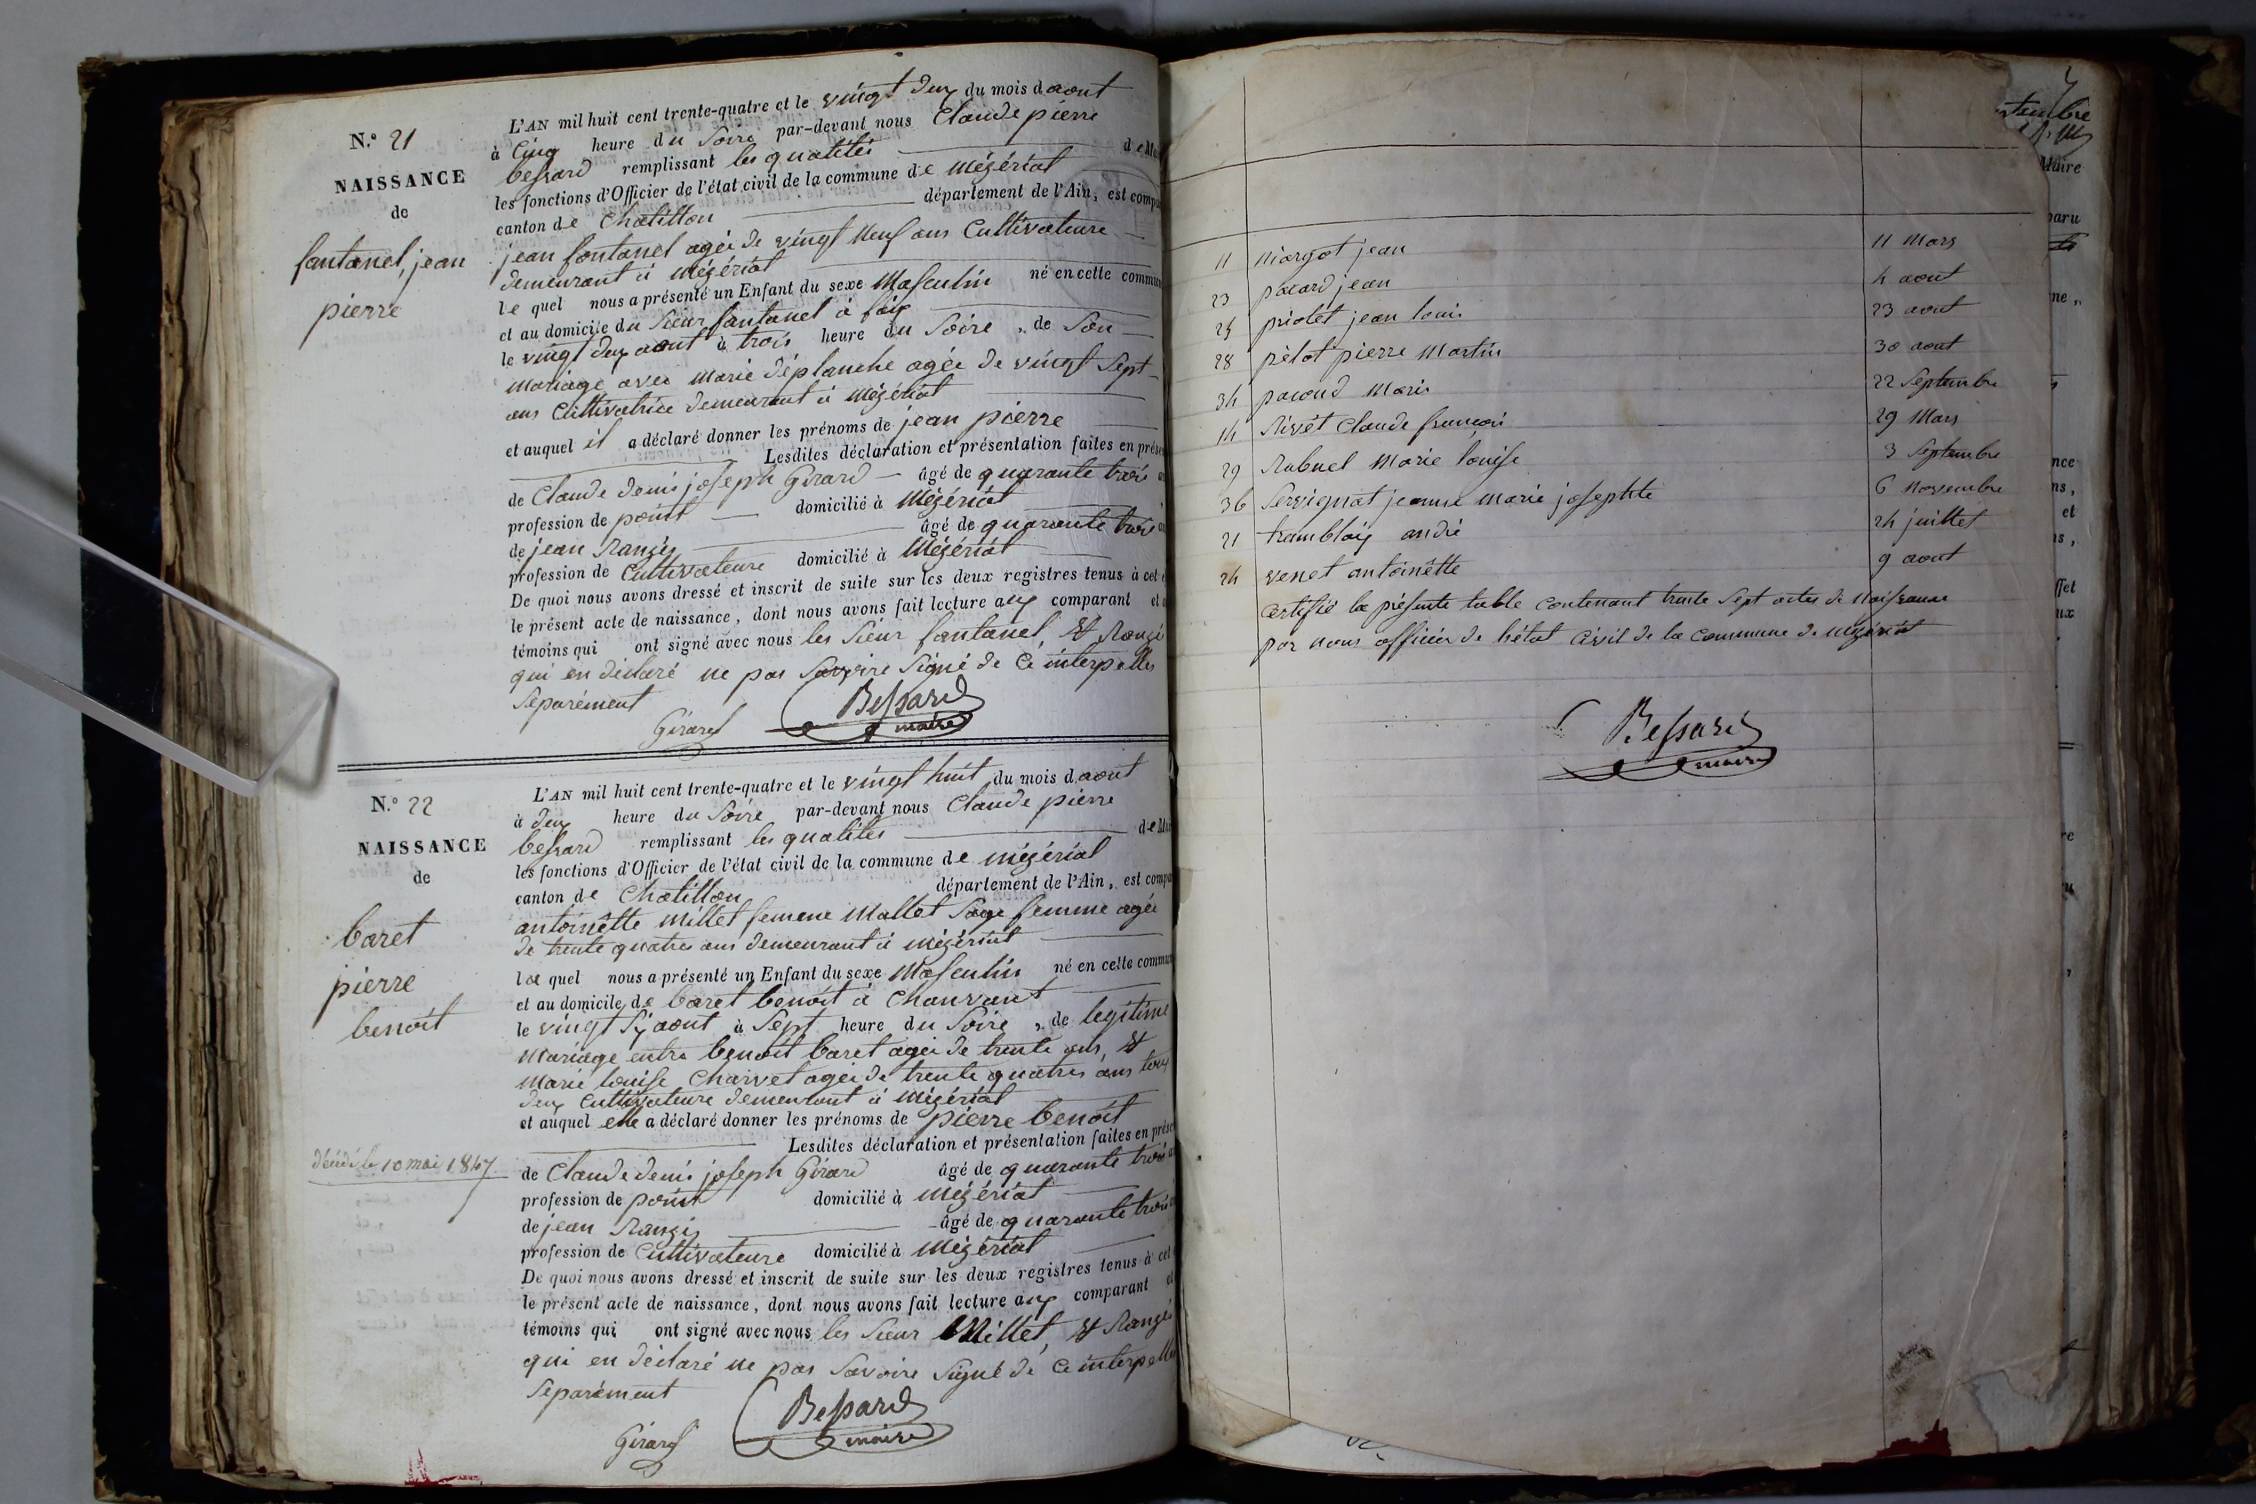 N.° 21
NAISSANCE
de
fantanel, jean
pierre
L'AN mil huit cent trente-quatre et le vingt deux du mois d'aout
à Cinq heure du Soire par-devant nous Claude pierre
bessard remplissant les qualités de Ma
les fonctions d'Officier de l'état civil de la commune de mézériat
canton de Chatillon département de l'Ain, est compa
jean fontanel agée de vingt neuf ans Cultivateure
demeurant à mézériat
le quel nous a présenté un Enfant du sexe Masculin né en cette commun
et au domicile du Sieur fantanel à
le vingt deux aout à trois heure du Soire, de Son
mariage avec marie déplanche agée de vingt Sept
ans Cultivatrice demeurant à mézériat
et auquel il a déclaré donner les prénoms de jean pierre
Lesdites déclaration et présentation faites en prése
de Claude deni joseph Girard âgé de quarante trois
profession de domicilié à Mézériat
de jean Rangé âgé de quarante trois
profession de Cultivateure domicilié à Mézériat
De quoi nous avons dressé et inscrit de suite sur les deux registres tenus à cet
le présent acte de naissance, dont nous avons fait lecture aux comparant et
témoins qui ont signé avec nous les Sieur fantanel, et Rangé
qui en déclaré ne pas Savoire Signé de Ce interpelles
Separément
Girard
Bessard
maire
N.° 22
NAISSANCE
de
baret
pierre
benoit
décédé le 10 mai 1847
L'AN mil huit cent trente-quatre et le vingt huit du mois d'aout
à deux heure du Soire par-devant nous Claude pierre
bessard remplissant les qualités de Mai
les fonctions d'Officier de l'état civil de la commune de mézériat
canton de Chatillon département de l'Ain, est compa
antoinètte millet femme Mallet Sage femme agée
de trente quatre ans demeurant à mézériat
la quel nous a présenté un Enfant du sexe Masculin né en cette commun
et au domicile de baret benoit à Chanvant
le vingt Six aout à Sept heure du Soire, de legitime
Mariage entre benoit baret agée de trente ans, et
Marie louise Charvet agée de trente quatres ans tous
deux Cultivateure demeurant à mézériat
et auquel elle a déclaré donner les prénoms de pierre benoit
Lesdites déclaration et présentation faites en prése
de Claude deni joseph Girard âgé de quarante trois
profession de domicilié à Mézériat
de jean Rangé âgé de quarante trois
profession de Cultivateure domicilié à Mézériat
De quoi nous avons dressé et inscrit de suite sur les deux registres tenus à cet
le présent acte de naissance, dont nous avons fait lecture aux comparant et
témoins qui ont signé avec nous les Sieur Millet, et Rangé
qui en déclaré ne pas Savoire Signé de Ce interpelle
Separément
Girard
Bessard
maire
11 niargot jean 11 Mars
23 pacard jean 4 aout
25 priolet jean louis 23 aout
28 pélot pierre Martin 30 aout
34 pacoud Marie 22 Septembre
14 Rivét Claude françois 29 Mars
29 Rabuel Marie louise 3 Septembre
36 Servignat jeanne marie josephte 6 Novembre
21 tremblay andré 24 juillet
24 venet antoinètte 9 aout
Certifié la présente table Contenant trente Sept actes de Naissance
par nous officier de l'état Civil de la Commune de mézériat
Bessard
maire
Maire
paru
nce
ns,
et
ffet
ux